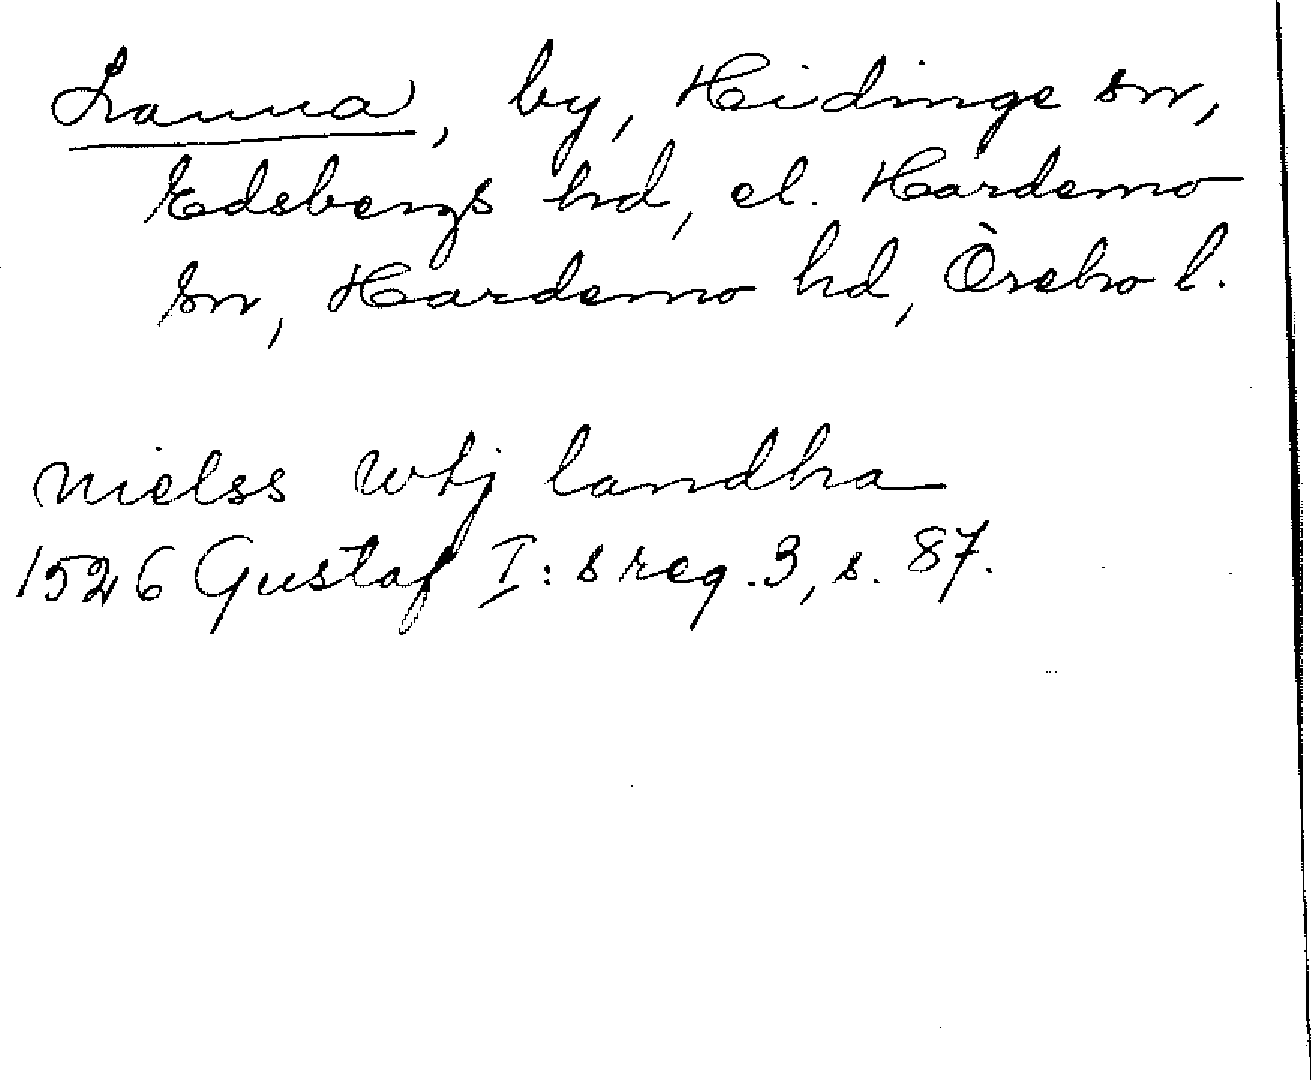 Lanna, by, Hidinge sn,
Edsbergs hd, el. Hardemo
sn, Hardemo hd, Örebro l.
nielss wtj landha
1526 Gustaf I:s reg. 3, s. 87.